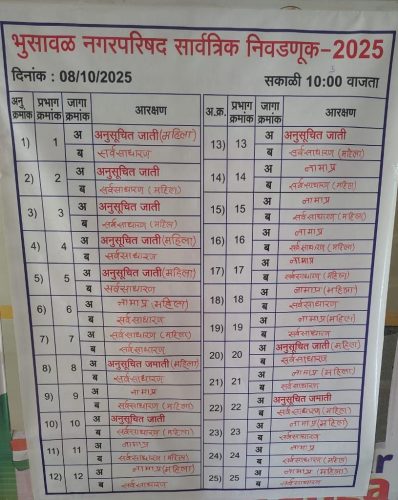 भुसावळ नगरपरिषद सार्वत्रिक निवडणूक-2025
दिनांक : 08/10/2025 सकाळी 10:00 वाजता
अनु क्रमांक प्रभाग क्रमांक जागा क्रमांक आरक्षण
1) 1 अ अनुसूचित जाती(महिला)
ब सर्वसाधारण
2) 2 अ अनुसूचित जाती
ब सर्वसाधारण (महिला)
3) 3 अ अनुसूचित जाती
ब सर्वसाधारण (महिला)
4) 4 अ अनुसूचित जाती(महिला)
ब सर्वसाधारण
5) 5 अ अनुसूचित जाती(महिला)
ब सर्वसाधारण
6) 6 अ नामाप्र (महिला)
ब सर्वसाधारण
7) 7 अ सर्वसाधारण (महिला)
ब सर्वसाधारण
8) 8 अ अनुसूचित जमाती (महिला)
ब सर्वसाधारण
9) 9 अ नामाप्र
ब सर्वसाधारण (महिला)
10) 10 अ अनुसूचित जाती
ब सर्वसाधारण (महिला)
11) 11 अ नामाप्र
ब सर्वसाधारण (महिला)
12) 12 अ नामाप्र(महिला)
ब सर्वसाधारण
अ.क्र. प्रभाग क्रमांक जागा क्रमांक आरक्षण
13) 13 अ अनुसूचित जाती
ब सर्वसाधारण (महिला)
14) 14 अ नामाप्र
ब सर्वसाधारण (महिला)
15) 15 अ नामाप्र
ब सर्वसाधारण (महिला)
16) 16 अ नामाप्र
ब सर्वसाधारण (महिला)
17) 17 अ नामाप्र
ब सर्वसाधारण (महिला)
18) 18 अ नामाप्र (महिला)
ब सर्वसाधारण
19) 19 अ नामाप्र(महिला)
ब सर्वसाधारण
20) 20 अ अनुसूचित जाती(महिला)
ब सर्वसाधारण
21) 21 अ नामाप्र(महिला)
ब सर्वसाधारण
22) 22 अ अनुसूचित जमाती
ब सर्वसाधारण (महिला)
23) 23 अ सर्वसाधारण (महिला)
ब सर्वसाधारण
24) 24 अ नामाप्र
ब सर्वसाधारण (महिला)
25) 25 अ नामाप्र (महिला)
ब सर्वसाधारण